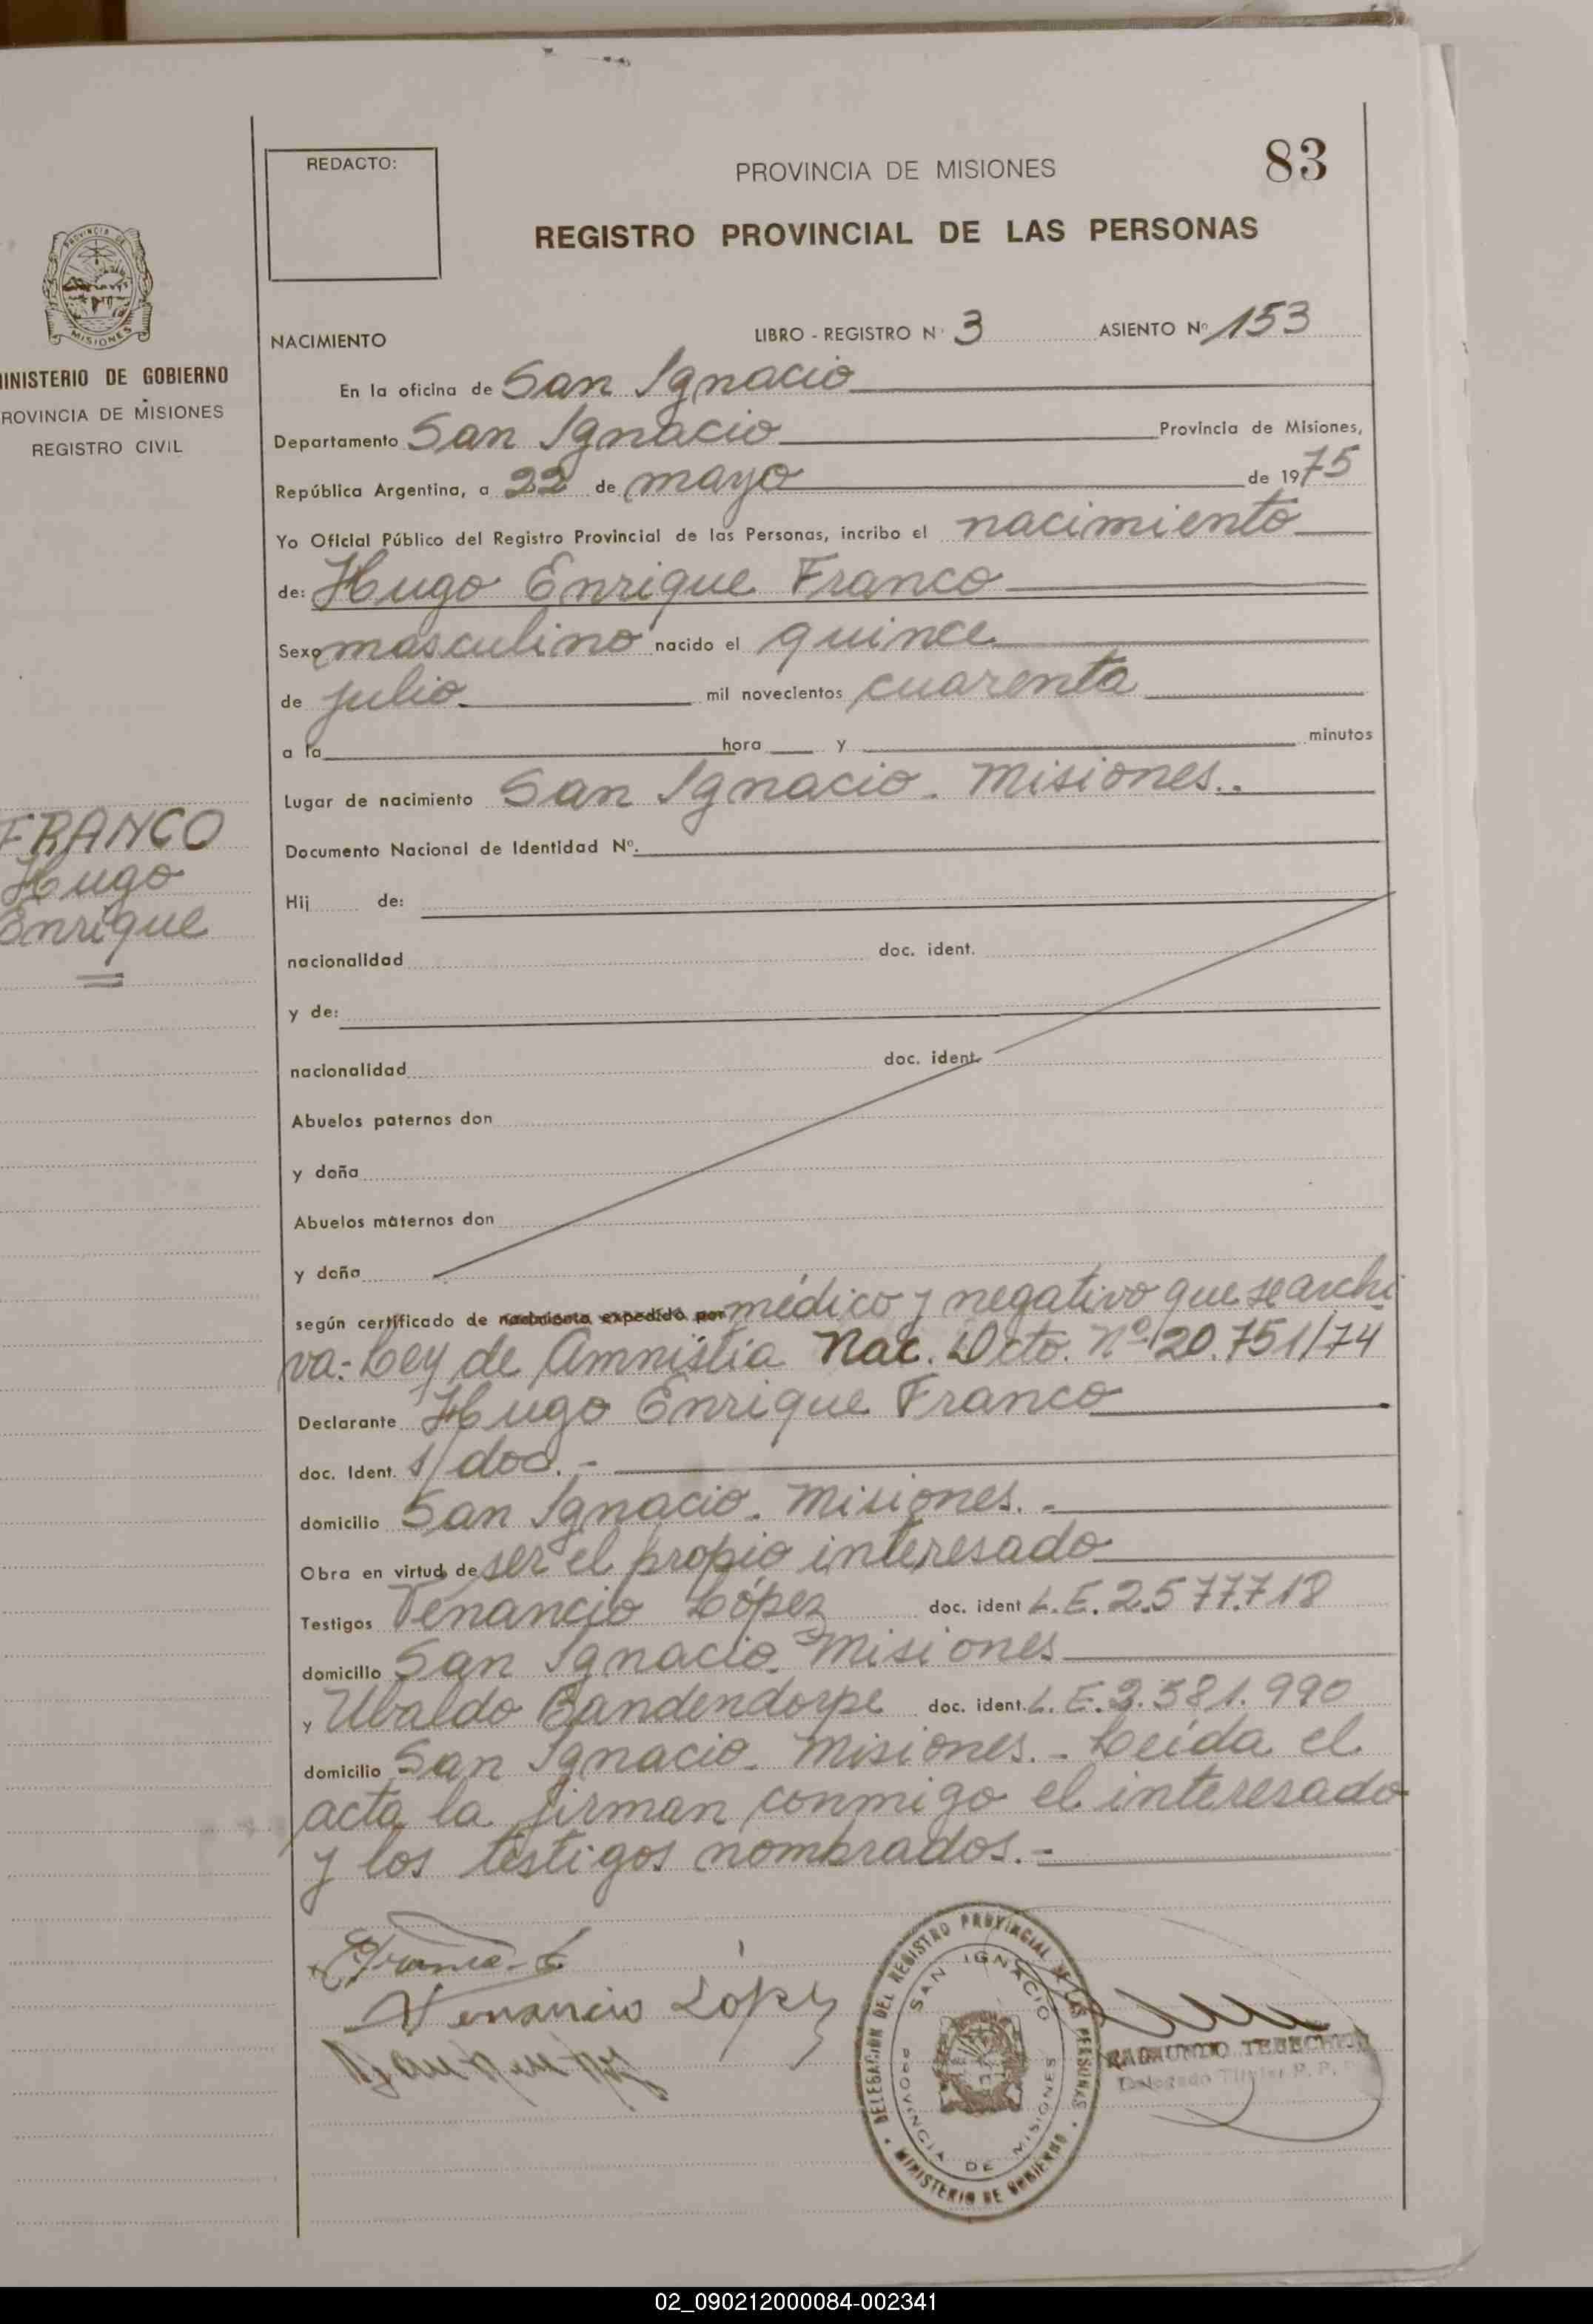 REDACTO:
PROVINCIA DE MISIONES
83
REGISTRO PROVINCIAL DE LAS PERSONAS
PROVINCIA DE
MISIONES
MINISTERIO DE GOBIERNO
PROVINCIA DE MISIONES
REGISTRO CIVIL
NACIMIENTO LIBRO - REGISTRO N° 3 ASIENTO N° 153
En la oficina de San Ignacio
Departamento San Ignacio Provincia de Misiones,
República Argentina, a 22 de mayo de 1975
Yo Oficial Público del Registro Provincial de las Personas, incribo el nacimiento
de: Hugo Enrique Franco
Sexo masculino nacido el quince
de julio. mil novecientos cuarenta
a la hora y minutos
Lugar de nacimiento San Ignacio. Misiones..
FRANCO
Hugo
Enrique
Documento Nacional de Identidad N°.
Hij de:
nacionalidad doc. ident.
y de:
nacionalidad doc. ident.
Abuelos paternos don
y doña
Abuelos maternos don
y doña
según certificado de nacimiento expedido por médico y negativo que se archi
va:- Ley de Amnistía Nac. Dcto. Nº 20.751/74
Declarante Hugo Enrique Franco
doc. Ident. s/doc. -
domicilio San Ignacio. Misiones. -
Obra en virtud de ser el propio interesado
Testigos Venancio López doc. ident L.E. 2.577.718
domicilio San Ignacio. Misiones
y Ubaldo Bandendorpe doc. ident. L.E. 2.381.990
domicilio San Ignacio. Misiones. - Leída el
acta la firman conmigo el interesado
y los testigos nombrados. -
Venancio López
DELEGACION DEL REGISTRO PROVINCIAL DE LAS PERSONAS
SAN IGNACIO
PROVINCIA DE MISIONES
MINISTERIO DE GOBIERNO
Delegado Titular R. P.
02_090212000084-002341